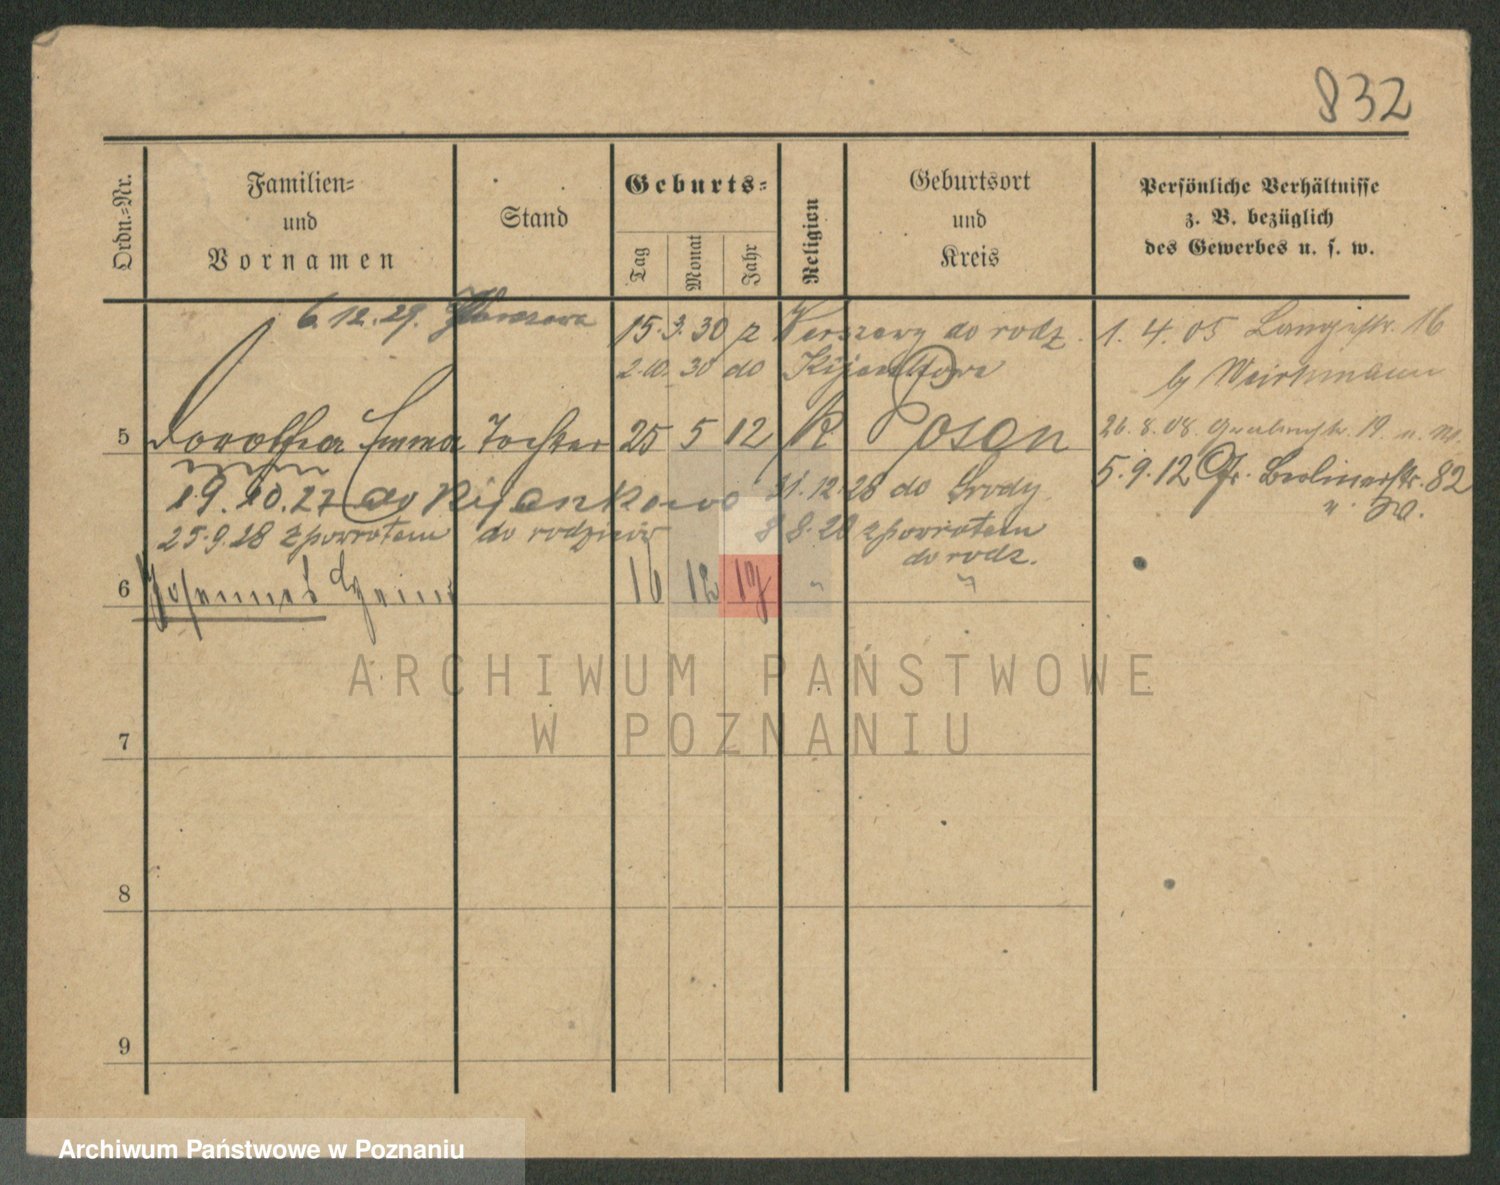 832
Ordn.-Nr.
Familien-
und
Vornamen
Stand
Geburts-
Tag
Monat
Jahr
Religion
Geburtsort
und
Kreis
Persönliche Verhältnisse
z. B. bezüglich
des Gewerbes u. s. w.
6.12.29.
15.3.30 z Warszawy do rodz.
1.4.05 16
2.10.30 do Kijankowo
5 Dorothea Emma Tochter 25 5 12 K Posen
26.8.08. 19
5.9.12 Gr. Berlinerstr. 82
19.10.27 do Kijankowo 31.12.28 do Brody
25.9.28 z powrotem do rodziców 8 8.28 z powrotem
do rodz.
6 Johannes 16 12 17 " "
7
8
9
ARCHIWUM PAŃSTWOWE
W POZNANIU
Archiwum Państwowe w Poznaniu